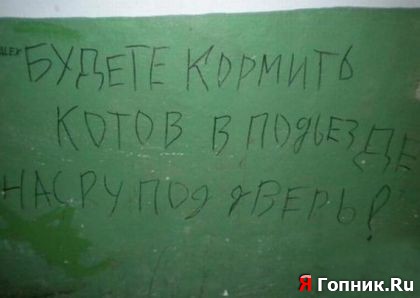 ALEX
БУДЕТЕ КОРМИТЬ
КОТОВ В ПОДЬЕЗДЕ
НАСРУ ПОД ДВЕРЬ!
Я Гопник.Ru